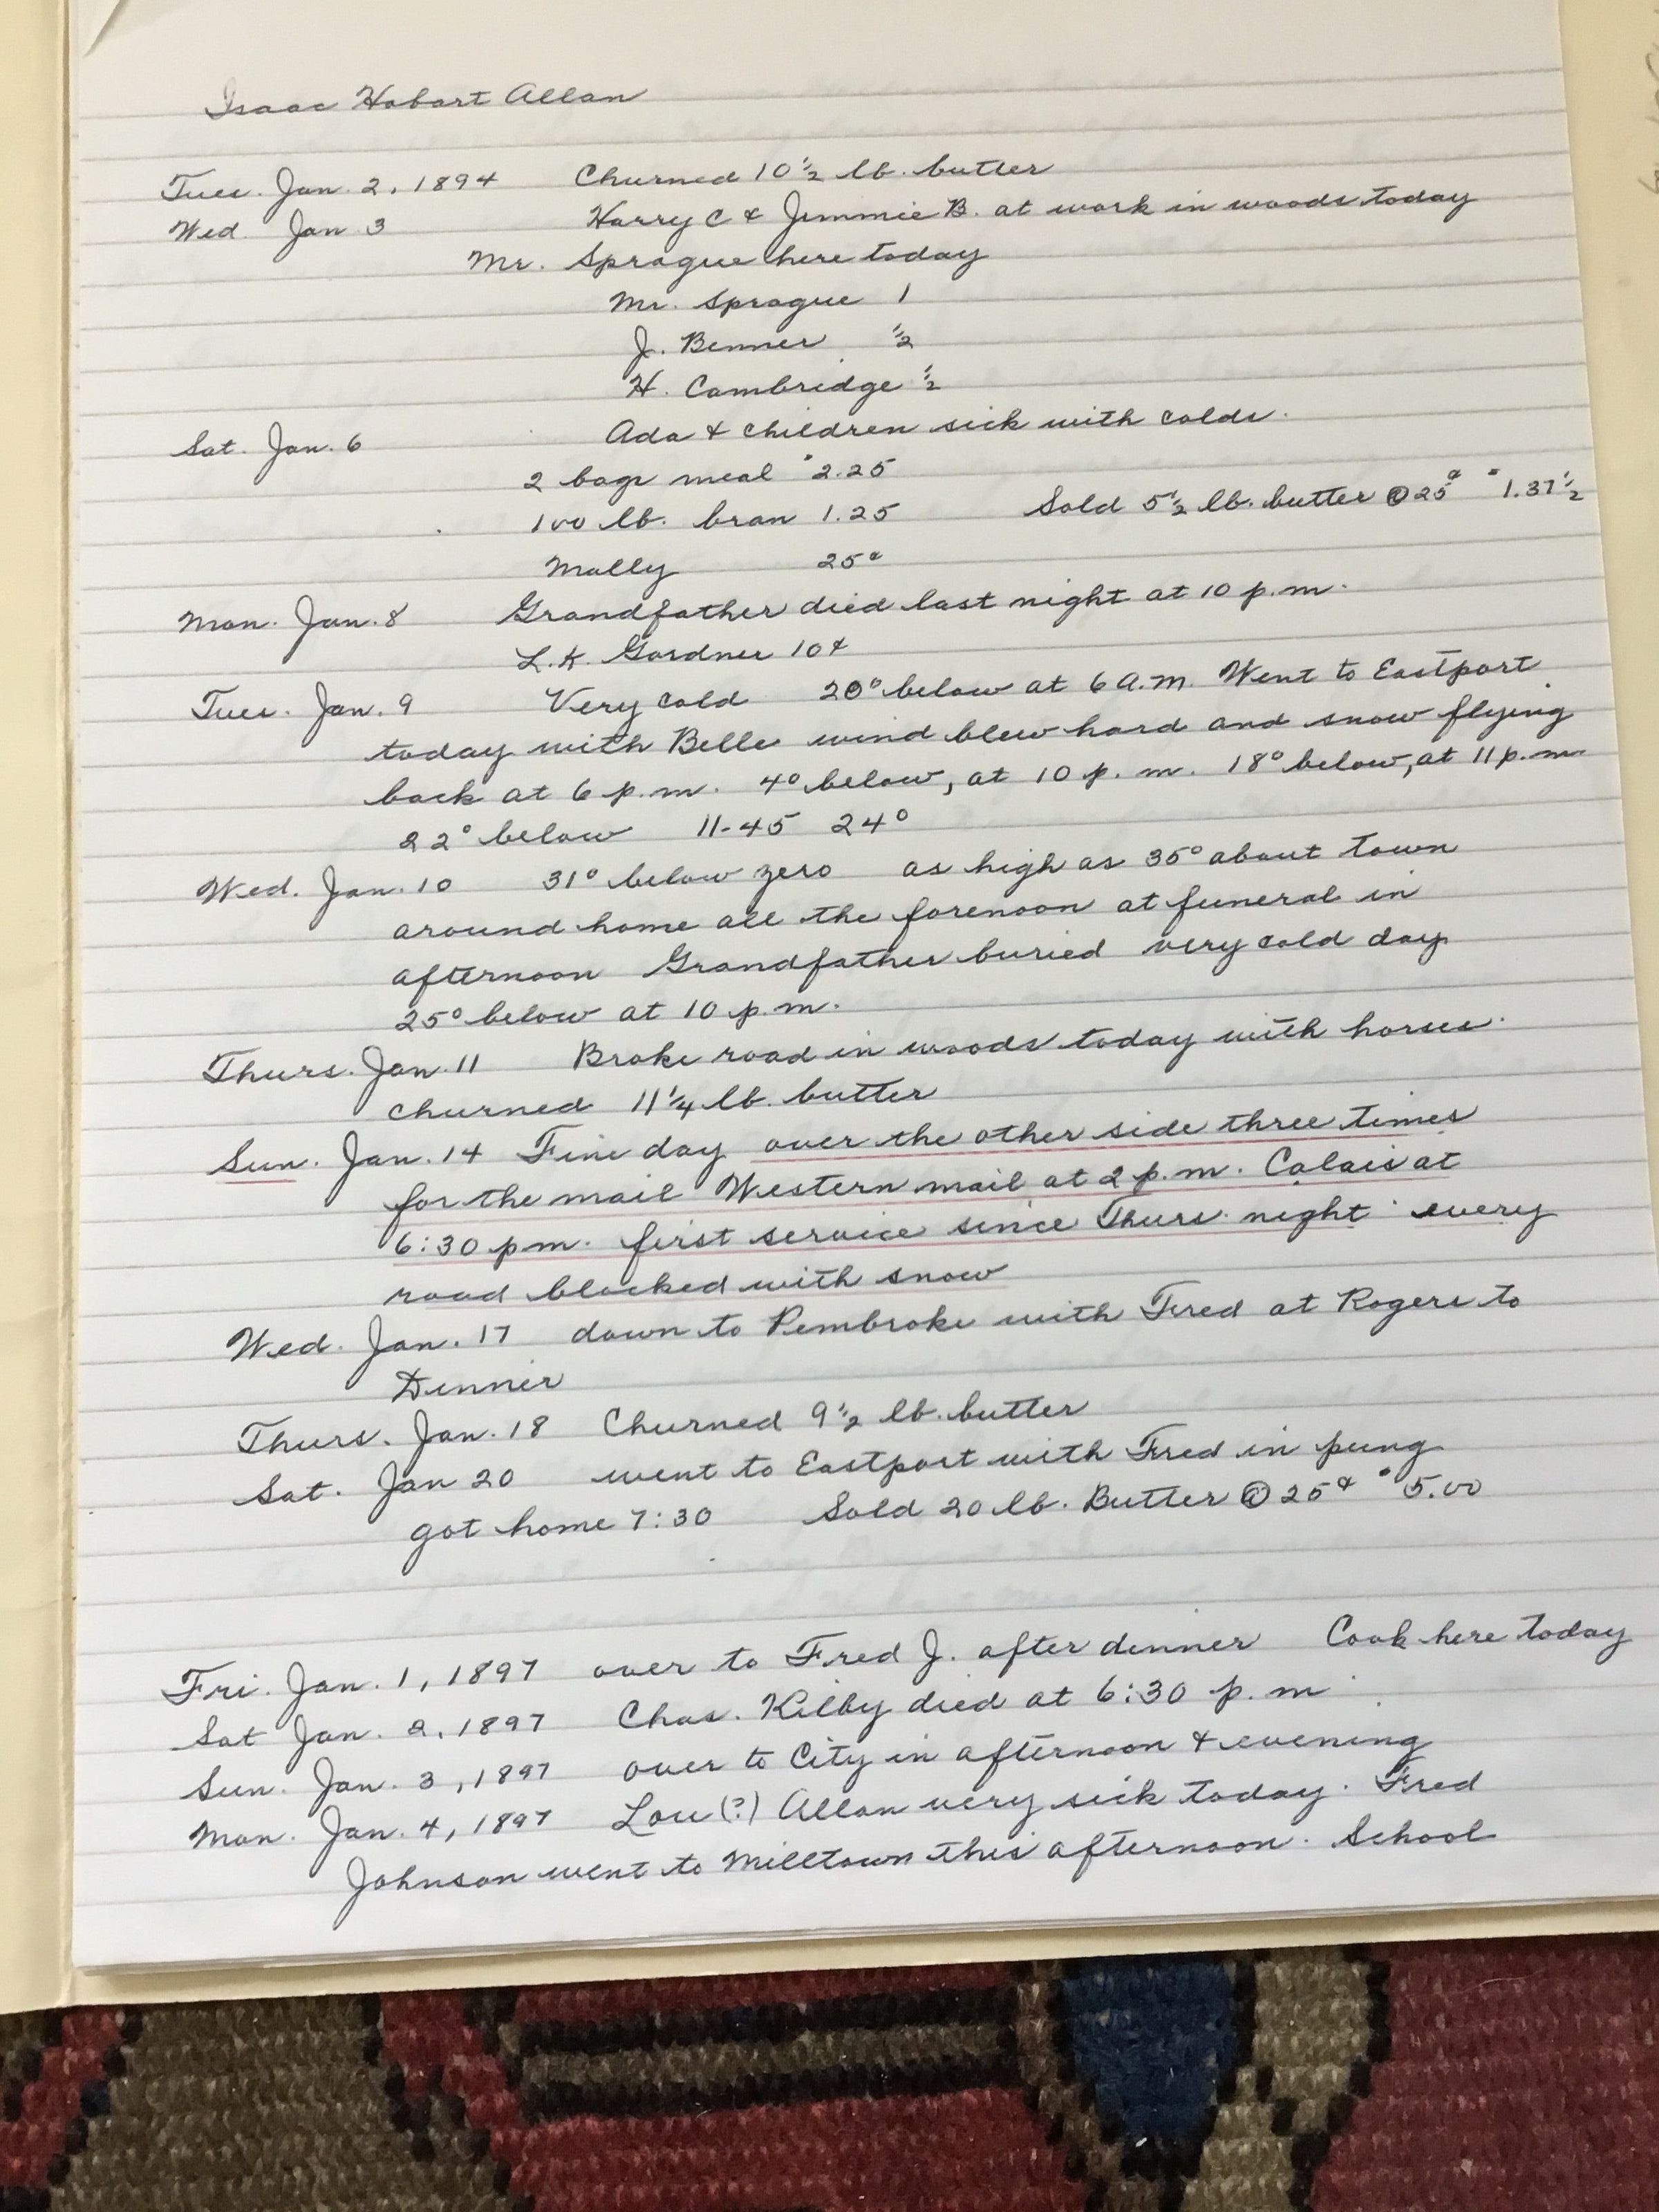 Isaac Hobart Allan
Tues. Jan. 2, 1894 Churned 10 1/2 lb. butter
Wed. Jan 3 Harry C & Jimmie B. at work in woods today
Mr. Sprague here today
Mr. Sprague 1
J. Benner 1/2
H. Cambridge 1/2
Sat. Jan. 6 Ada & children sick with colds.
2 bags meal $2.25
100 lb. bran 1.25 Sold 5 1/2 lb. butter @ 25¢ $1.37 1/2
Molly 25¢
Mon. Jan. 8 Grandfather died last night at 10 p.m.
L.K. Gardner 10¢
Tues. Jan. 9 Very cold 20° below at 6 A.M. Went to Eastport
today with Belle wind blew hard and snow flying
back at 6 p.m. 4° below, at 10 p.m. 18° below, at 11 p.m.
22° below 11-45 24°
Wed. Jan. 10 31° below zero as high as 35° about town
around home all the forenoon at funeral in
afternoon Grandfather buried very cold day
25° below at 10 p.m.
Thurs. Jan. 11 Broke road in woods today with horses.
churned 11 1/4 lb. butter
Sun. Jan. 14 Fine day over the other side three times
for the mail Western mail at 2 p.m. Calais at
6:30 pm. first service since Thurs. night every
road blocked with snow
Wed. Jan. 17 down to Pembroke with Fred at Rogers to
Dinner
Thurs. Jan. 18 Churned 9 1/2 lb. butter
Sat. Jan 20 went to Eastport with Fred in pung
got home 7:30 Sold 20 lb. Butter @ 25¢ $5.00
Fri. Jan. 1, 1897 over to Fred J. after dinner Cook here today
Sat Jan. 2, 1897 Chas. Kilby died at 6:30 p.m.
Sun. Jan. 3, 1897 over to City in afternoon & evening
Mon. Jan. 4, 1897 Lou (?) Allan very sick today. Fred
Johnson went to Milltown this afternoon. School